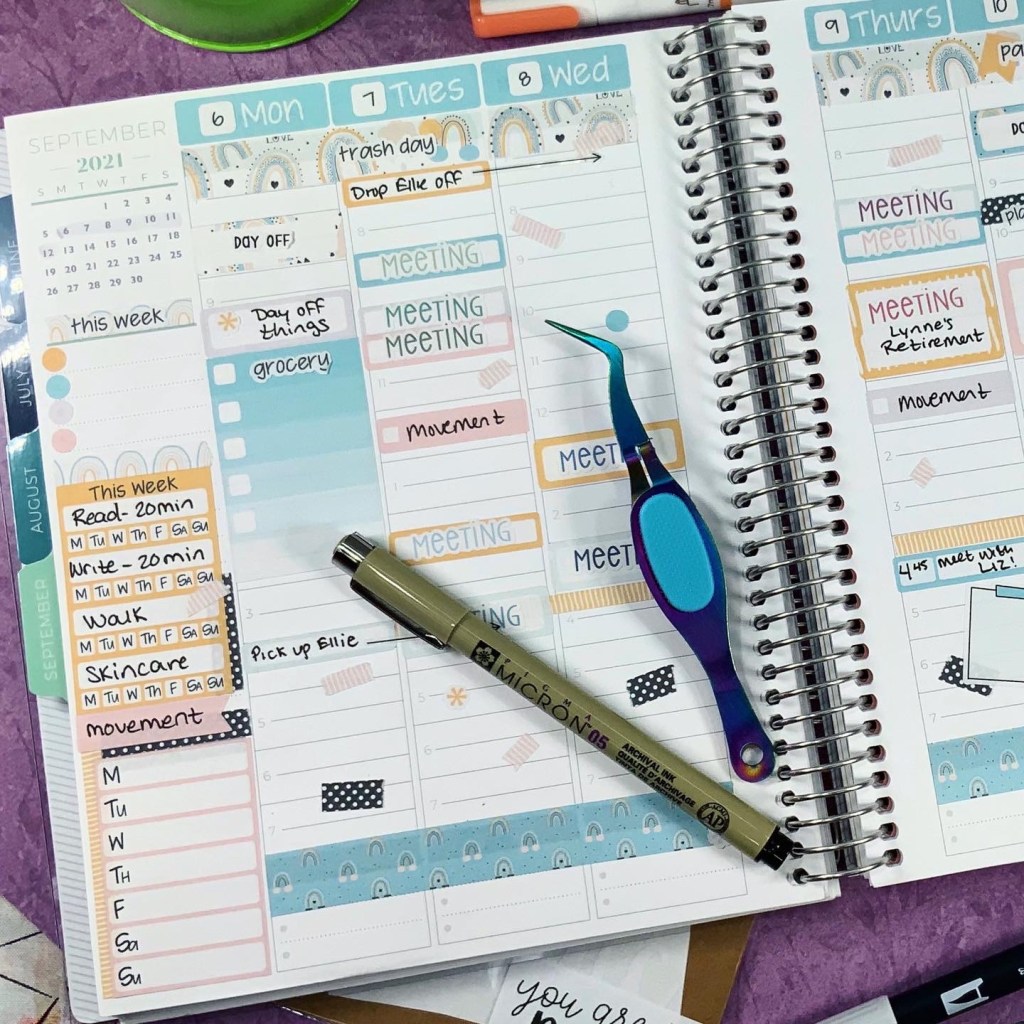 SEPTEMBER
2021
S M T W T F S
1 2 3 4
5 6 7 8 9 10 11
12 13 14 15 16 17 18
19 20 21 22 23 24 25
26 27 28 29 30
this week
This Week
Read - 20min
M Tu W Th F Sa Su
Write - 20min
M Tu W Th F Sa Su
Walk
M Tu W Th F Sa Su
Skincare
M Tu W Th F Sa Su
movement
M
Tu
W
Th
F
Sa
Su
JULY
AUGUST
SEPTEMBER
6 Mon
LOVE
DAY OFF
9
* Day off
things
grocery
3
Pick up Ellie
5
6
7
7 Tues
trash day
Drop Ellie off
8
MEETING
MEETING
MEETING
11
movement
1
MEETING
5
6
7
8 Wed
8
9
10
12
2
9 Thurs
LOVE
8
MEETING
MEETING
MEETING
Lynne's
Retirement
movement
2
3
4:45 meet with
LIZ!
5
6
7
10
9
10
SIGMA
MICRON 05
ARCHIVAL INK
QUALITÉ D'ARCHIVAGE
AP
you are